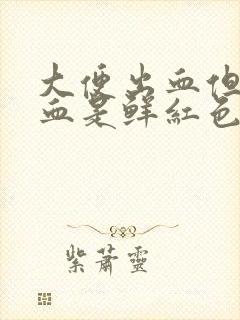 大便出血但
血是鲜红色
紫萧靈